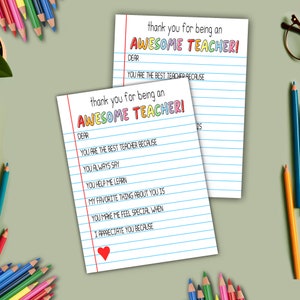 thank you for being an
AWESOME TEACHER!
DEAR
YOU ARE THE BEST TEACHER BECAUSE
thank you for being an
AWESOME TEACHER!
DEAR
YOU ARE THE BEST TEACHER BECAUSE
YOU ALWAYS SAY
YOU HELP ME LEARN
MY FAVORITE THING ABOUT YOU IS
YOU MAKE ME FEEL SPECIAL WHEN
I APPRECIATE YOU BECAUSE